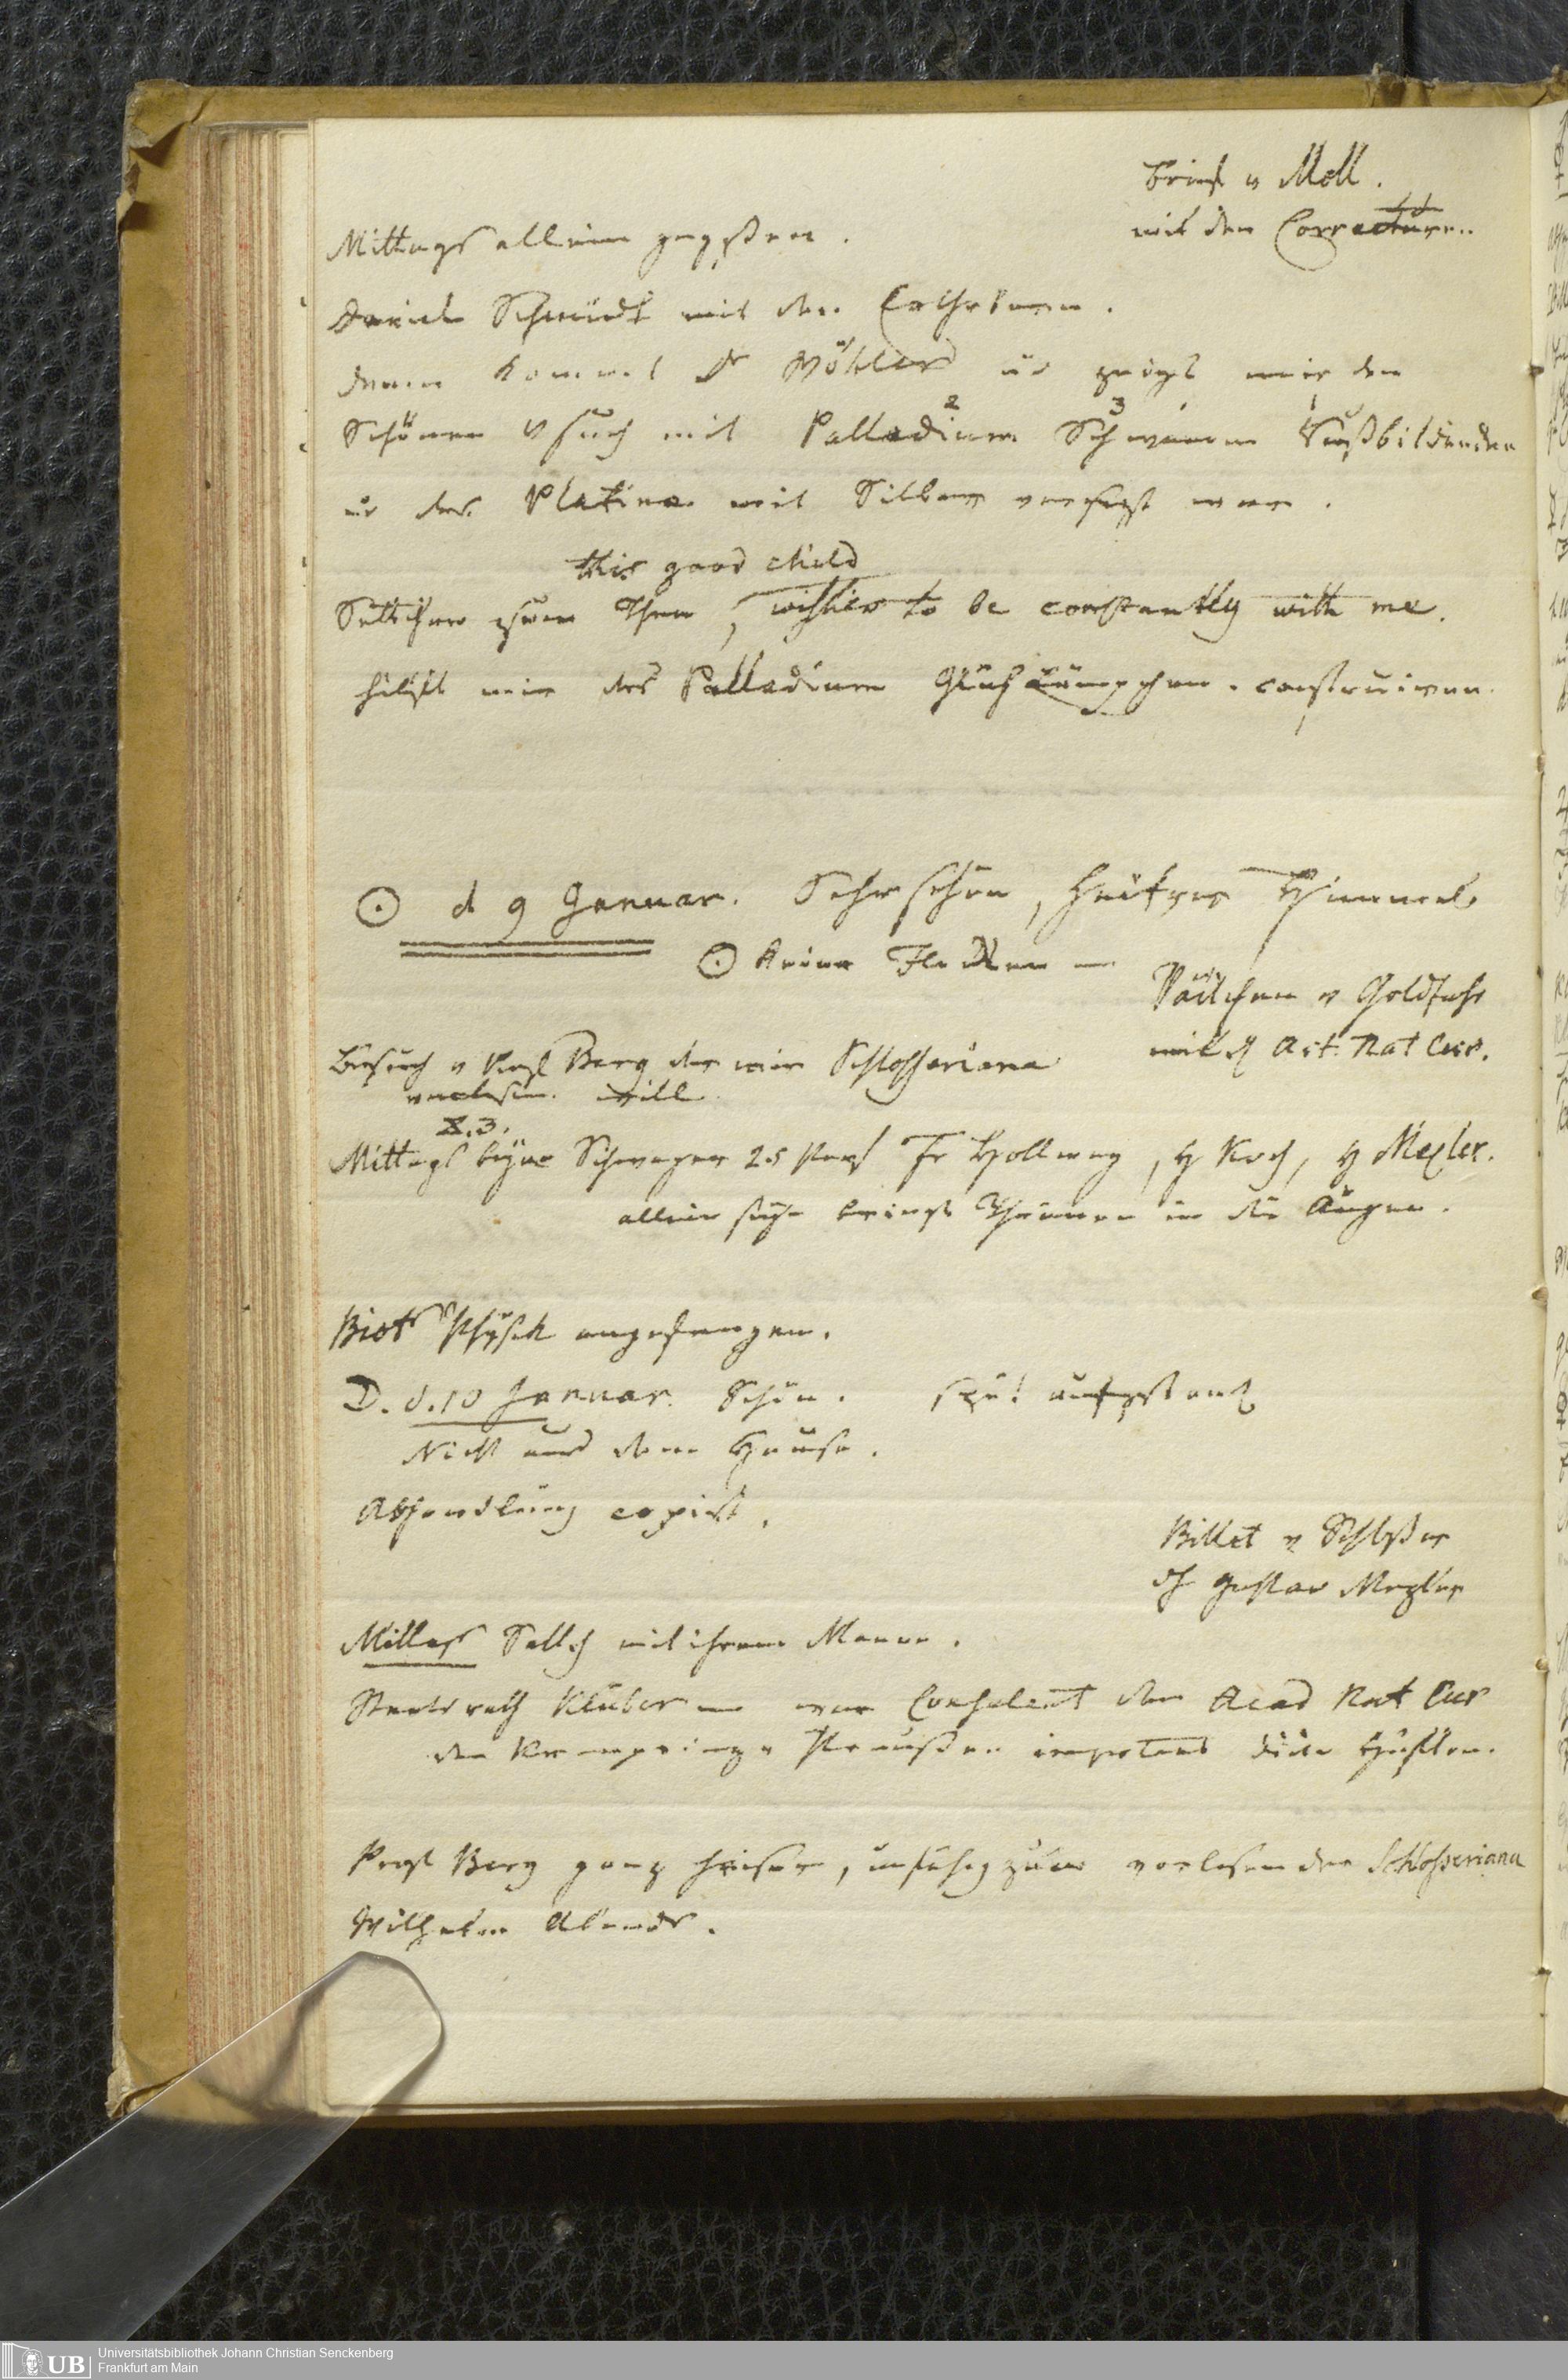 Brief v Moll.
mit den Correcturen.
Mittags allein gegeßen.
Daniel Schmidt mit den
dann kommt Dr Wöhler und zeigt mir den
Schönen Vsuch mit Palladium Schwamm Rußbildenden
u der Platina mit Silber versezt war.
this good child
Settchen zum Thee, wishes to be constantly with me.
hilft mir das Palladium Glühlämpchen construiren.
☉ d 9 Januar. Sehr schön, heitrer Himmel
☉ keine Flecken —
Päckchen v Goldfuß
mit d Act. Nat Cur.
Besuch v Prof Berg der mir Schlosseriana
vorlesen will.
Mittags beym Schwager 25 Pers Fr Hollweg, H Koch, H Mezler.
allein
bringt Thränen in die Augen.
Biots Physik angefangen.
D. d. 10 Januar. Schön. spät aufgestand
Nicht aus dem Hause.
Abhandlung copirt.
Billet v Schloßer
dh Gustav Mezler
Mittags Settch mit ihrem Manne.
Staatsrath Klüber war Consulent der Acad Nat Cur
den Kronprinz v Preußen impotent dicke Hüften.
Prof Berg ganz heiser, unfähig zum vorlesen der Schlosseriana
Wilhelm Abends.
Universitätsbibliothek Johann Christian Senckenberg
Frankfurt am Main
UB